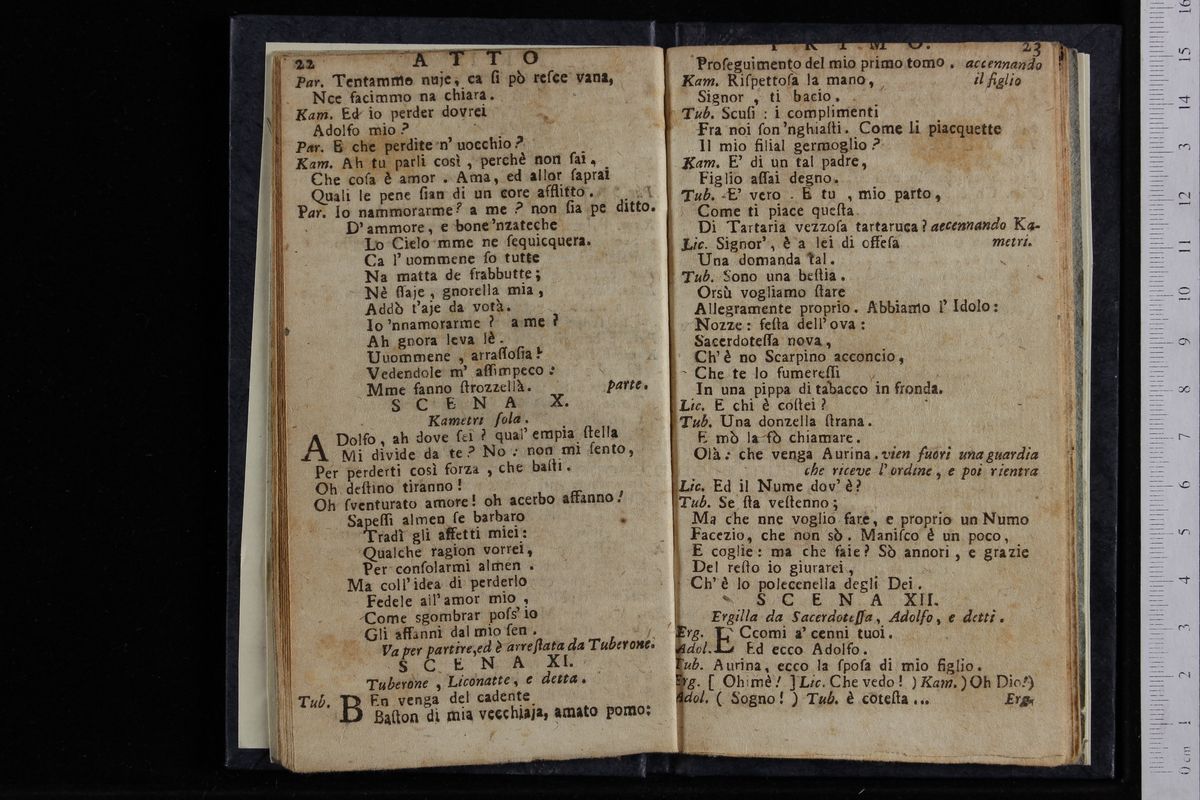 22 A T T O
Par. Tentammo nuje, ca ſi pò reſce vana,
Nce facimmo na chiara.
Kam. Ed io perder dovrei
Adolfo mio?
Par. E che perdite n' uocchio?
Kam. Ah tu parli così, perchè non ſai,
Che coſa è amor. Ama, ed allor ſaprai
Quali le pene ſian di un core afflitto.
Par. Io nammorarme? a me? non ſia pe ditto.
D' ammore, e bone 'nzateche
Lo Cielo mme ne ſequicquera.
Ca l' uommene ſo tutte
Na matta de frabbutte;
Nè ſlaje, gnorella mia,
Addò t'aje da votà.
Io 'nnamorarme? a me?
Ah gnora leva lè.
Uuommene, arraſſoſia!
Vedendole m' aſſimpeco:
Mme fanno ſtrozzellà. parte.
S C E N A X.
Kametri ſola.
ADolfo, ah dove ſei? qual' empia ſtella
Mi divide da te? No: non mi ſento,
Per perderti così forza, che baſti.
Oh deſtino tiranno!
Oh ſventurato amore! oh acerbo affanno!
Sapeſſi almen ſe barbaro
Tradì gli affetti miei:
Qualche ragion vorrei,
Per conſolarmi almen.
Ma coll' idea di perderlo
Fedele all' amor mio,
Come sgombrar poſs' io
Gli affanni dal mio ſen.
Va per partire, ed è arreſtata da Tuberone.
S C E N A XI.
Tuberone, Liconatte, e detta.
Tub. BEn venga del cadente
Baſton di mia vecchiaja, amato pomo:
P R I M O. 23
Proſeguimento del mio primo tomo. accennando
Kam. Riſpettoſa la mano, il figlio
Signor, ti bacio.
Tub. Scuſi: i complimenti
Fra noi ſon'nghiaſti. Come li piacquette
Il mio filial germoglio?
Kam. E' di un tal padre,
Figlio aſſai degno.
Tub. E' vero. E tu, mio parto,
Come ti piace queſta
Di Tartaria vezzoſa tartaruca? accennando Ka-
Lic. Signor', è a lei di offeſa metri.
Una domanda tal.
Tub. Sono una beſtia.
Orsù vogliamo ſtare
Allegramente proprio. Abbiamo l' Idolo:
Nozze: feſta dell' ova:
Sacerdoteſſa nova,
Ch' è no Scarpino acconcio,
Che te lo fumereſſi
In una pippa di tabacco in fronda.
Lic. E chi è coſtei?
Tub. Una donzella ſtrana.
E mò la fò chiamare.
Olà: che venga Aurina. vien fuori una guardia
che riceve l' ordine, e poi rientra
Lic. Ed il Nume dov' è?
Tub. Se ſta veſtenno;
Ma che nne voglio fare, e proprio un Numo
Facezio, che non sò. Maniſco è un poco,
E coglie: ma che faie? Sò annori, e grazie
Del reſto io giurarei,
Ch' è lo polecenella degli Dei.
S C E N A XII.
Ergilla da Sacerdoteſſa, Adolfo, e detti.
Erg. ECcomi a' cenni tuoi.
Adol. Ed ecco Adolfo.
Tub. Aurina, ecco la ſpoſa di mio figlio.
Erg. [ Ohimè! ] Lic. Che vedo! ) Kam. ) Oh Dio!)
Adol. ( Sogno! ) Tub. è coteſta... Erg.